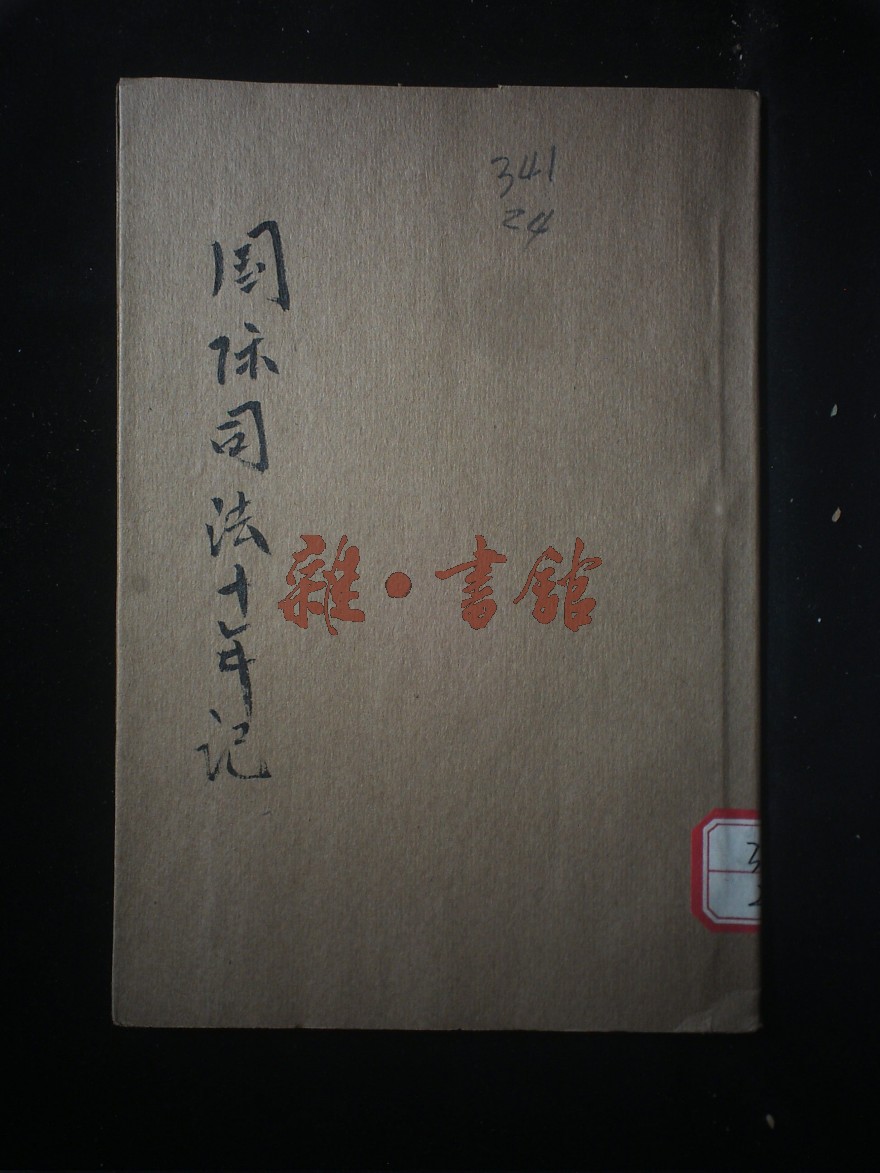 341
24
国际司法十年记
雜·書館
3
2